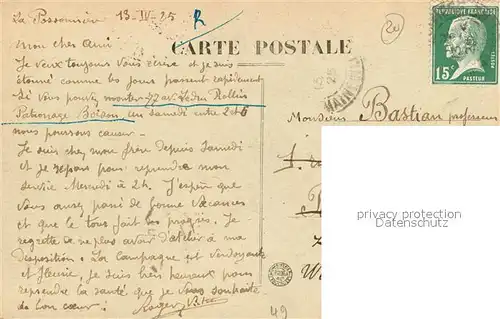 La Possonnière 13-IV-25 R
CARTE POSTALE
Mon cher Ami
Je veux toujours vous écrire et je suis
étonné comme les jours passent rapidement
Si vous pouvez monter 77 av Ledru Rollin
Patronage un samedi entre 2 et 6
nous pourrons causer -
Je suis chez mon frère depuis Samedi
et je repars pour reprendre mon
service Mercredi à 2h. J'espère que
vous aurez passé de bonnes vacances
et que le tous fait des progrès. Je
regrette de ne plus avoir d' à ma
disposition. La campagne est verdoyante
et fleurie, je suis très heureux pour
reprendre la santé que je vous souhaite
de bon cœur! Roger
REPUBLIQUE FRANÇAISE
POSTES
15c
PASTEUR
Monsieur Bastian professeur
privacy protection
Datenschutz
49